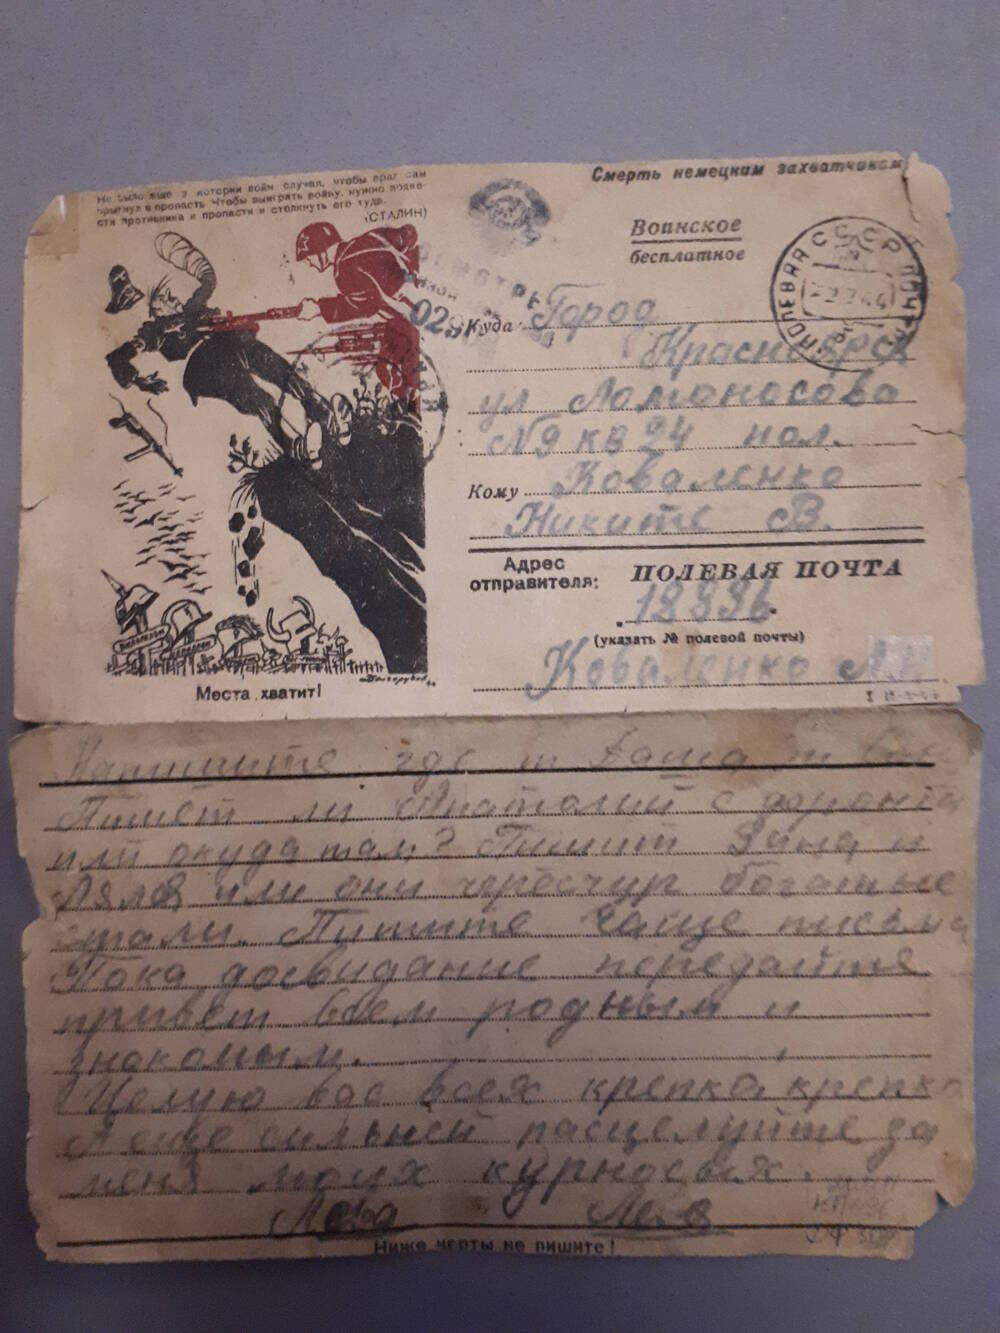 Не было еще в истории войн случая, чтобы враг сам
прыгнул в пропасть. Чтобы выиграть войну, нужно подве-
сти противника к пропасти и столкнуть его туда.
(СТАЛИН)
Смерть немецким захватчикам
Воинское
бесплатное
СССР
ПОЛЕВАЯ ПОЧТА
029
Куда Город
Красноярск
ул Ломоносова
№9 кв 24 пол.
Кому Коваленко
Никите В.
Адрес
отправителя:
ПОЛЕВАЯ ПОЧТА
(указать № полевой почты)
Коваленко Л.Н.
Места хватит!
Напишите где т Даша и
Пишет ли Анатолий с фронта
или окуда там? Пишит Зина и
Ляля или они чересчур богатые
стали. Пишите чаще письма
Пока досвидание передайте
привет всем родным и
знакомым.
Целую вас всех крепка крепка
А еще сильней расцелуйте за
меня моих курносых.
Лева
Ниже черты не пишите!